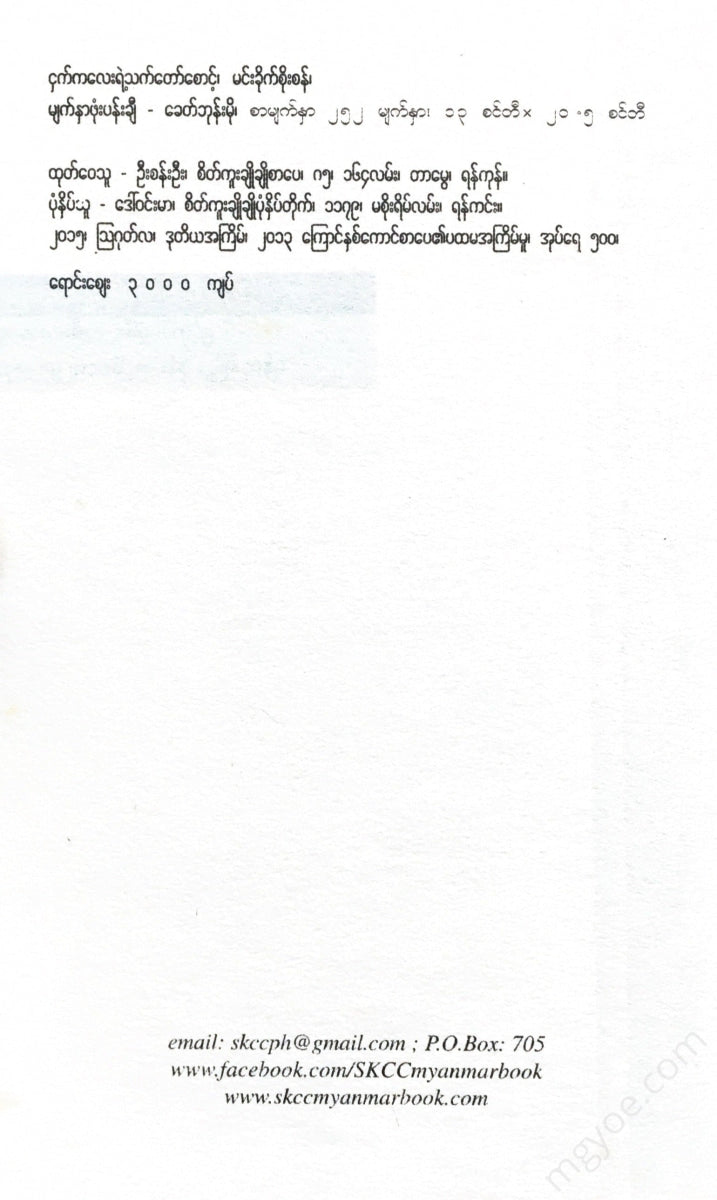 ငှက်ကလေးရဲ့သက်တော်စောင့်၊ မင်းခိုက်စိုးစန်၊
မျက်နှာဖုံးပန်းချီ - ခေတ်ဘုန်းမို၊ စာမျက်နှာ ၂၅၂ မျက်နှာ၊ ၁၃ စင်တီ × ၂၀.၅ စင်တီ
ထုတ်ဝေသူ - ဦးစန်းဦး၊ စိတ်ကူးချိုချိုစာပေ၊ ဂ၅၊ ၁၆၄လမ်း၊ တာမွေ၊ ရန်ကုန်။
ပုံနှိပ်သူ - ဒေါ်ဝင်းမာ၊ စိတ်ကူးချိုချိုပုံနှိပ်တိုက်၊ ၁၁၇၉၊ မစိုးရိမ်လမ်း၊ ရန်ကင်း။
၂၀၁၅၊ ဩဂုတ်လ၊ ဒုတိယအကြိမ်၊ ၂၀၁၃ ကြောင်နှစ်ကောင်စာပေ၏ပထမအကြိမ်မူ၊ အုပ်ရေ ၅၀၀၊
ရောင်းဈေး ၃၀၀၀ ကျပ်
email: skccph@gmail.com ; P.O.Box: 705
www.facebook.com/SKCCmyanmarbook
www.skccmyanmarbook.com
mgyoe.com